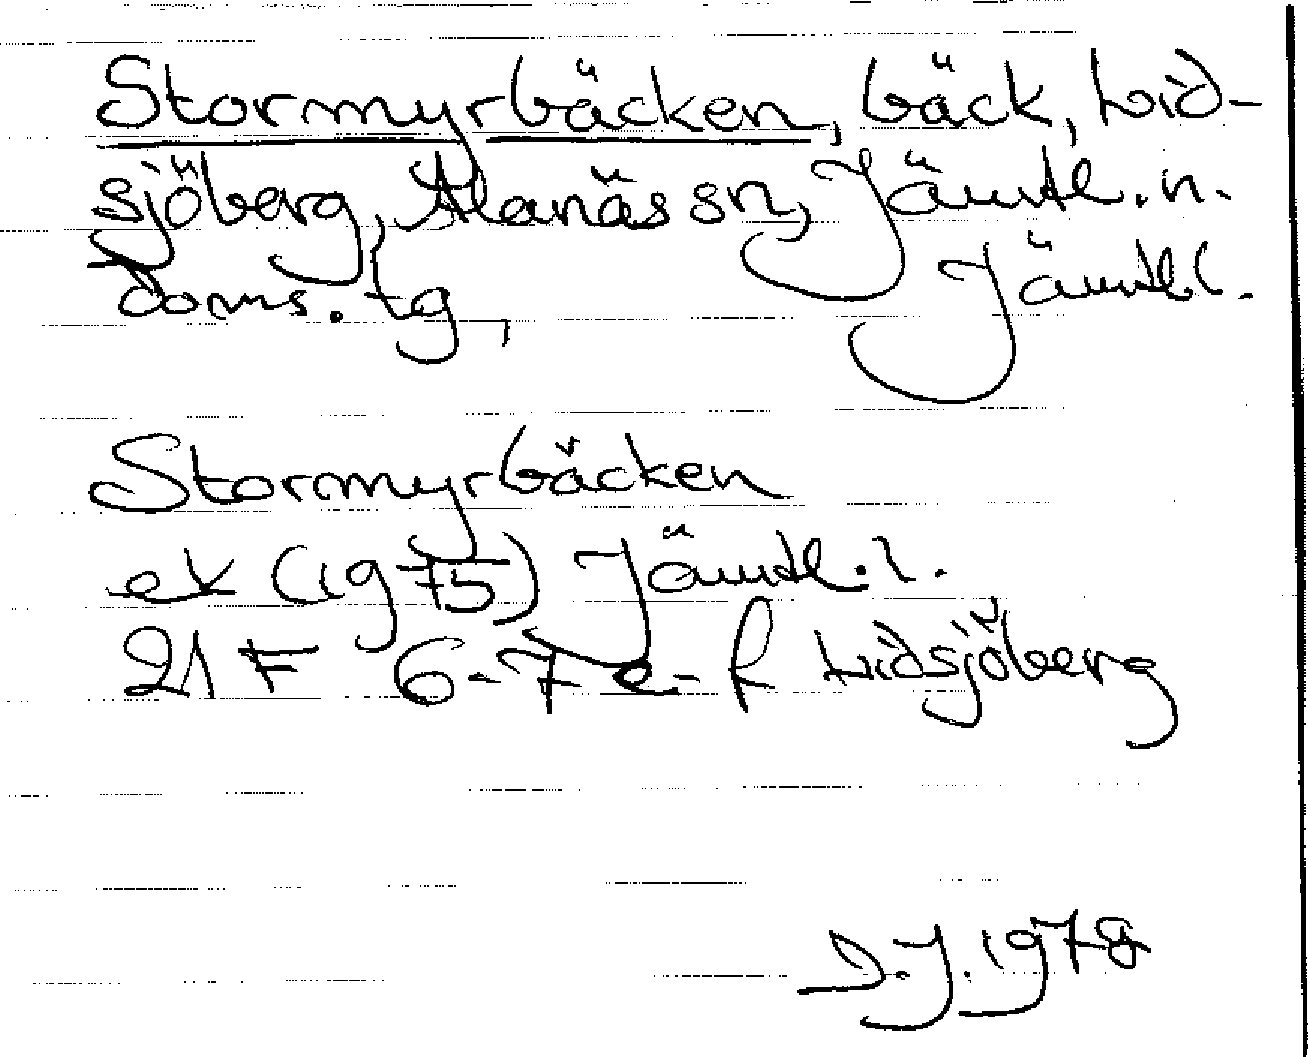 Stormyrbäcken, bäck, Lid-
sjöberg, Alanäs sn, Jämtl. n.
doms. tg, Jämtl.
Stormyrbäcken
ek (1975) Jämtl. l.
21 F 6-7 e-f Lidsjöberg
D.J. 1978